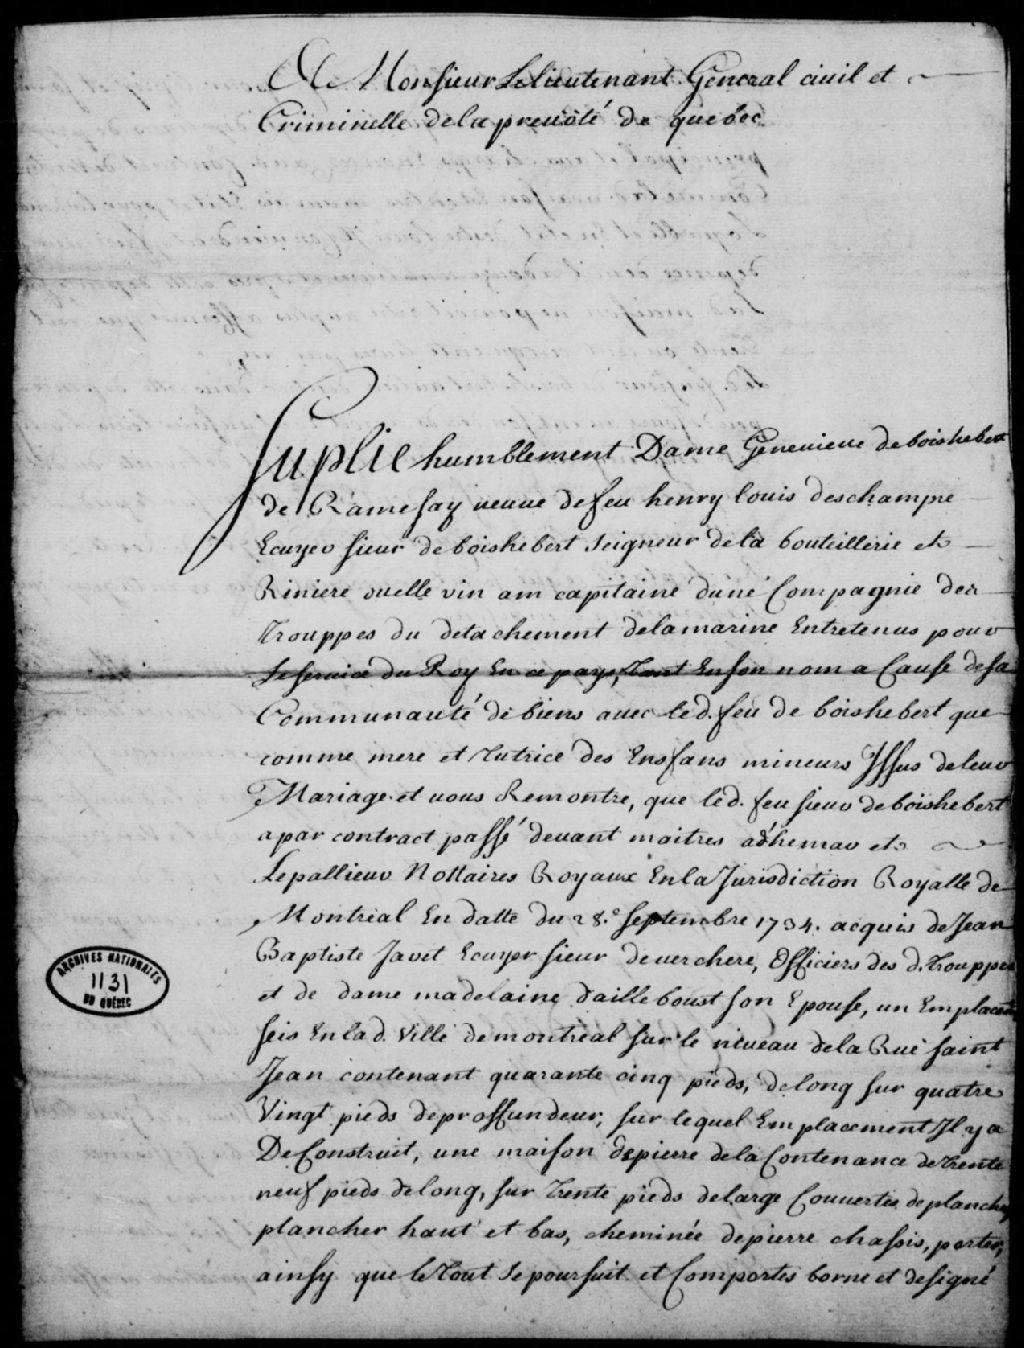 A Monsieur Le lieutenant General ciuil et
Criminelle de la preuôté de quebec
Suplie humblement Dame Geneuieue de boishebert
de Ramesay veuue de feu henry louis deschamps
Ecuyer sieur de boishebert seigneur de la bouteillerie et
Riuiere ouelle viuant capitaine dune Compagnie des
trouppes du detachement de la marine Entretenus pour
Le seruice du Roy En ce pays, tant En son nom a Cause de sa
Communauté de biens auec led. feu de boishebert que
comme mere et tutrice des Ensfans mineurs Jssus de leur
Mariage et vous Remontre, que led. feu sieur de boishebert
a par contract passé deuant maitres adhemar et
Lepallieur Nottaires Royaux En la Jurisdiction Royalle de
Montréal En datte du 28.e septembre 1734. acquis de Jean
Baptiste Jaret Ecuyer sieur de uerchere, Officiers des d. trouppes
et de dame madelaine dailleboust son Epouse, un Emplacemt
seis En lad. Ville de montréal sur le niueau de la Rue saint
Jean contenant quarante cinq pieds, de long sur quatre
Vingt pieds de proffundeur, sur lequel Emplacement Jl y a
De Construit, une maison de pierre de la Contenance de trente
neuf pieds de long, sur trente pieds de large Couuertes de planche
plancher haut et bas, cheminée de pierre chassis, portes,
ainsy que le tout se poursuit et Comportes borne et designé
ARCHIVES NATIONALES
1131
DU QUÉBEC